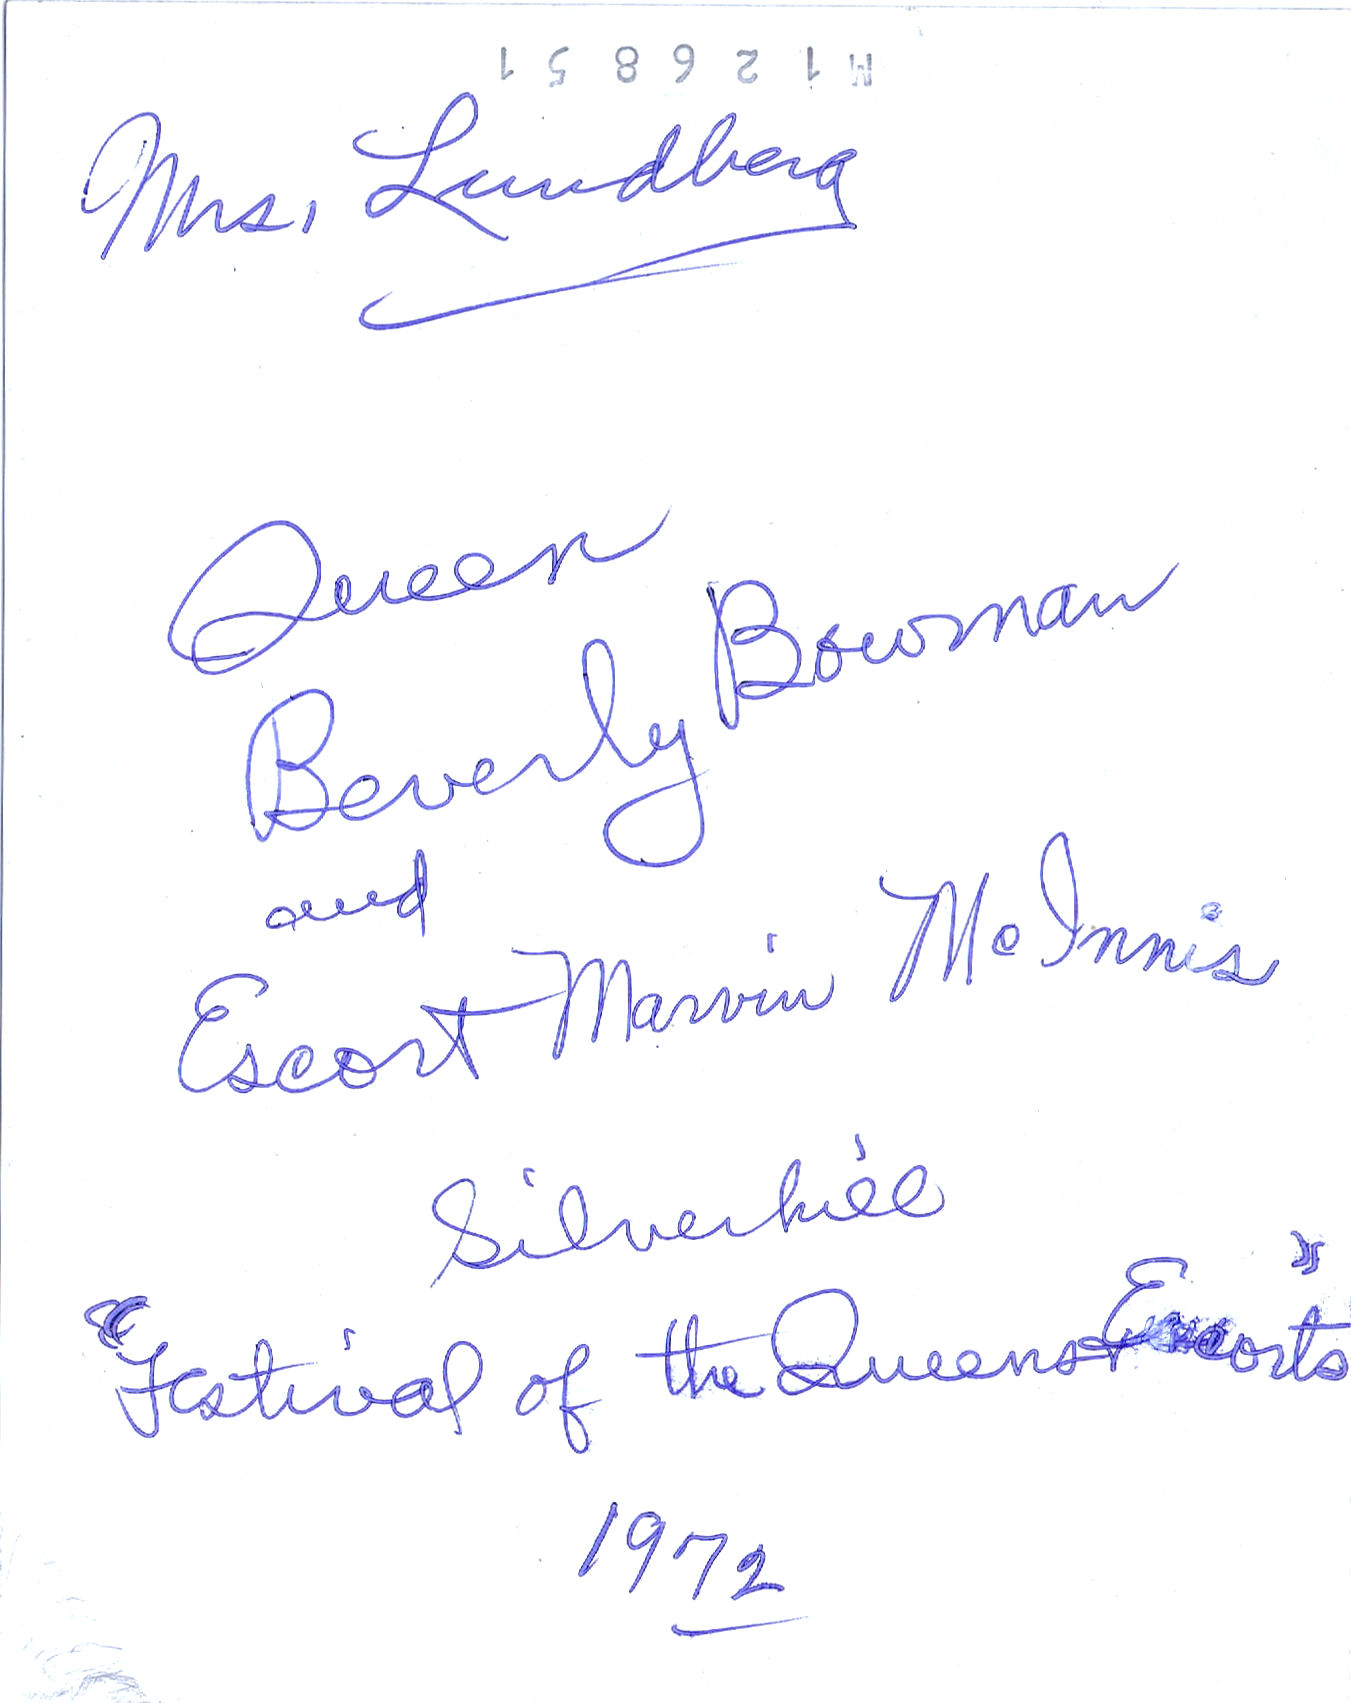 M126851
Mrs. Lundberg
Queen
Beverly Bowman
and
Escort Marvin McInnis
Silverhill
"Festival of the Queens + Escorts"
1972